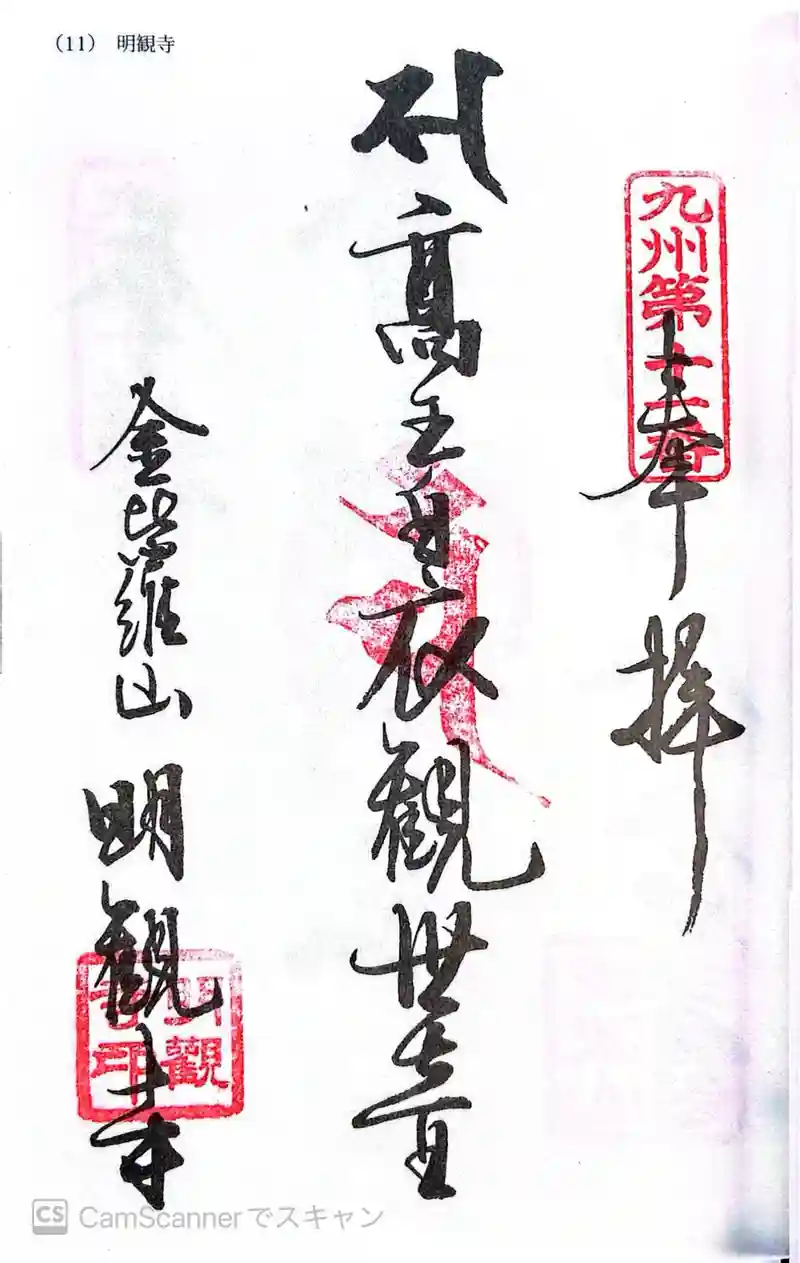 (11) 明観寺
九州第十一番
奉拝
髙王白衣観世音
金比羅山 明観寺
明觀寺印
CS CamScannerでスキャン